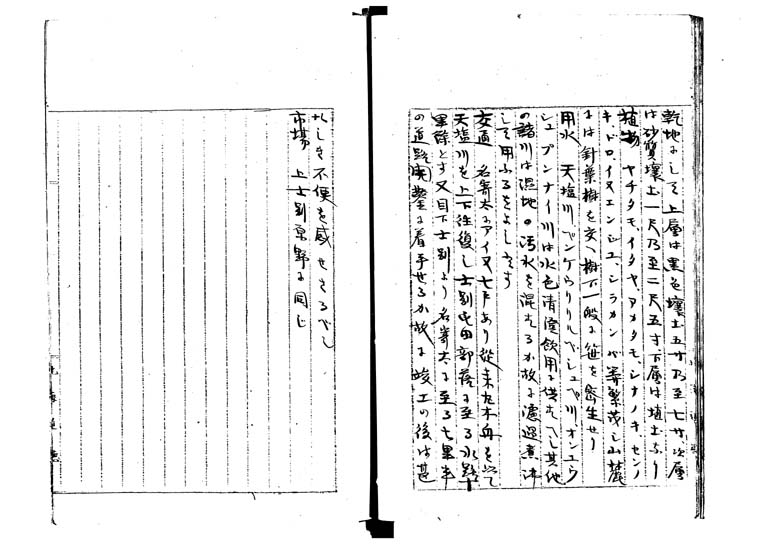 乾地にして上層は黒色壌土五寸乃至七寸次層
は砂質壌土一尺乃至二尺五寸下層は埴土なり
植物 ヤチタモ、イタヤ、アカタモ、シナノキ、センノ
キ、ドロ、イヌエンジュ、シラカンバ等繁茂し山麓
には針葉樹を交へ樹下一般に笹を密生せり
用水 天塩川ペンケヌカナンプ川オンネ
川は水色清澄飲用に供すべし其他
の諸川は湿地の汚水を混するか故に濾過煮沸
して用ふるをよしとす
交通 名寄太にアイヌ七戸あり従来丸木舟を以て
天塩川を上下往復し士別屯田部落に至る
里程とす又目下士別より名寄太に至る七里半
の道路開鑿に着手せるか故に竣工の後は甚
たしき不便を感せさるべし
市場 上士別原野に同じ